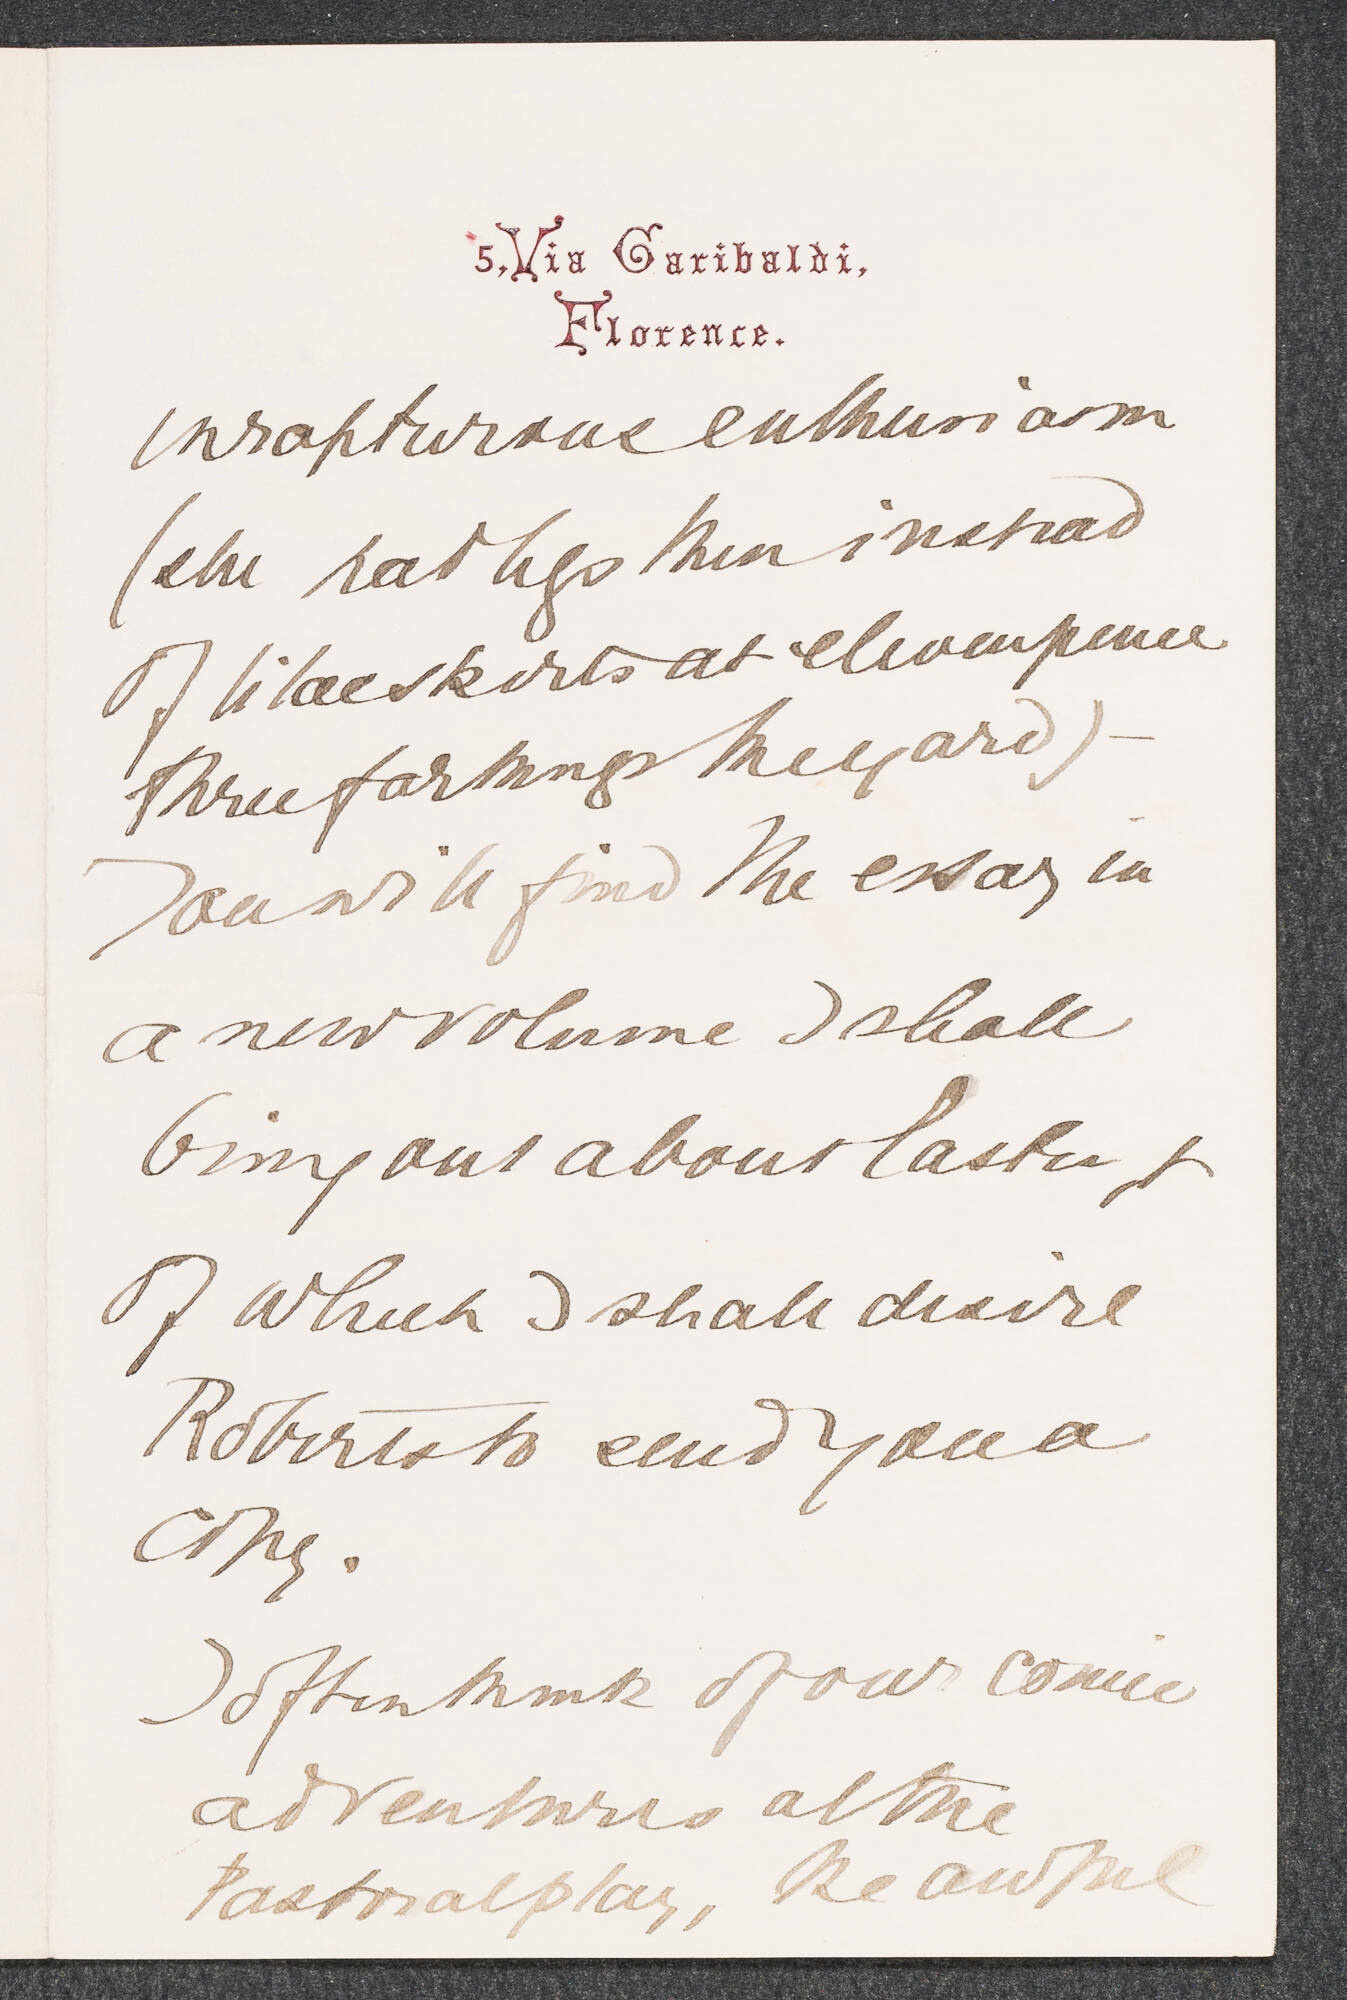 5, Via Garibaldi,
Florence.
in rapturous enthusiasm
(she had legs then instead
of lilac skirts at elevenpence
three farthings the yard) —
You will find the essay in
a new volume I shall
bring out about Easter &
of which I shall desire
Roberts to send you a
copy.
I often think of our comic
adventures at the
Pastoral play, the awful